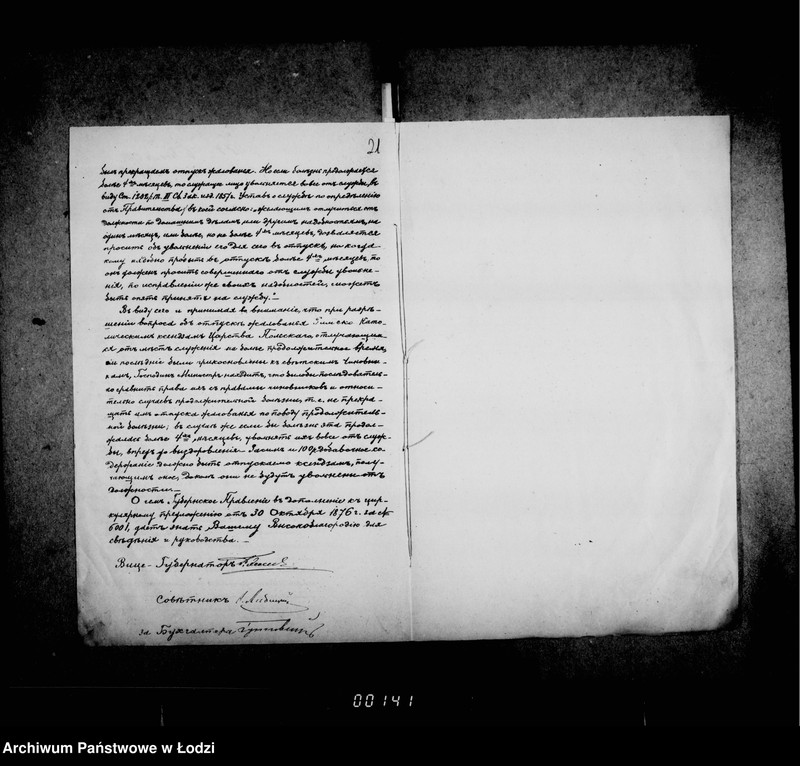 21
былъ прекращаемъ отпускъ жалованья. Но если болѣзнь продолжается
болѣе 4хъ мѣсяцевъ, то служащее лицо увольняется вовсе отъ службы, въ
виду Ст. 1202 т. III Св. Зак. изд. 1857 г. Уставъ о службѣ по опредѣленію
отъ Правительства, въ коей согласно: „желающимъ отлучиться отъ
должности по домашнимъ дѣламъ, или другимъ надобностямъ, на
одинъ мѣсяцъ, или болѣе, но не болѣе 4хъ мѣсяцевъ, дозволяется
просить объ увольненіи его для сего въ отпускъ, но когда
кому нужно пробыть въ отпуску болѣе 4хъ мѣсяцевъ, то
онъ долженъ просить совершеннаго отъ службы увольне-
нія, по исправленіи же своихъ надобностей, можетъ
быть опять принятъ на службу."
Въ виду сего и принимая во вниманіе, что при разрѣ-
шеніи вопроса объ отпускѣ жалованья Римско-Като-
лическимъ ксендзамъ Царства Польскаго отлучающим-
ся отъ мѣстъ служенія на болѣе продолжительное время,
последніе были приравнены къ свѣтскимъ чиновни-
камъ, Господинъ Министръ находитъ, что было бы послѣдователь-
но сравнить права ихъ съ правами чиновниковъ и относи-
тельно случаевъ продолжительной болѣзни, т. е. не прекра-
щать имъ отпуска жалованья по поводу продолжитель-
ной болѣзни; въ случаѣ же если бы болѣзнь эта продол-
жалась болѣе 4хъ мѣсяцевъ, увольнять ихъ вовсе отъ служ-
бы, впредь до выздоровленія. и 100 р. добавочное со-
держаніе должно быть отпускаемо ксендзамъ, полу-
чающимъ оное, доколѣ они не будутъ уволены отъ
должности.
О семъ Губернское Правленіе въ дополненіе къ цир-
кулярному предложенію отъ 30 Октября 1876 г. за №
6001, даетъ знать Вашему Высокоблагородію для
свѣдѣнія и руководства.
Вице-Губернаторъ
Совѣтникъ
за Бухгалтера
00141
Archiwum Państwowe w Łodzi